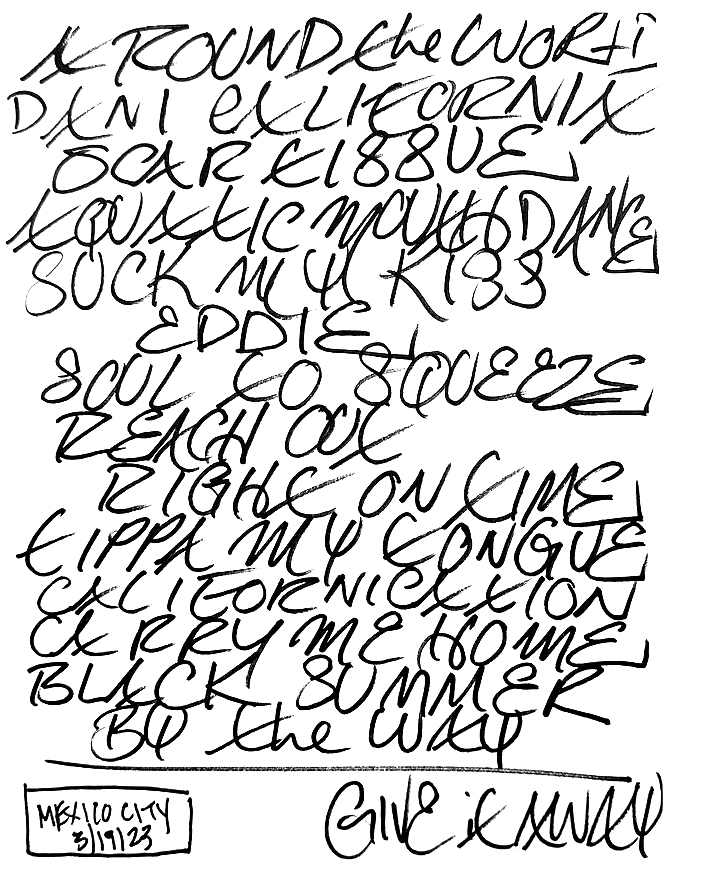 AROUND the WORLD
DANI CALIFORNIA
SCAR TISSUE
AQUATIC MOUTH DANCE
SUCK MY KISS
EDDIE
SOUL TO SQUEEZE
REACH OUT
RIGHT ON TIME
TIPPA MY TONGUE
CALIFORNICATION
CARRY ME HOME
BLACK SUMMER
BY the WAY
GIVE it AWAY
MEXICO CITY
3/19/23